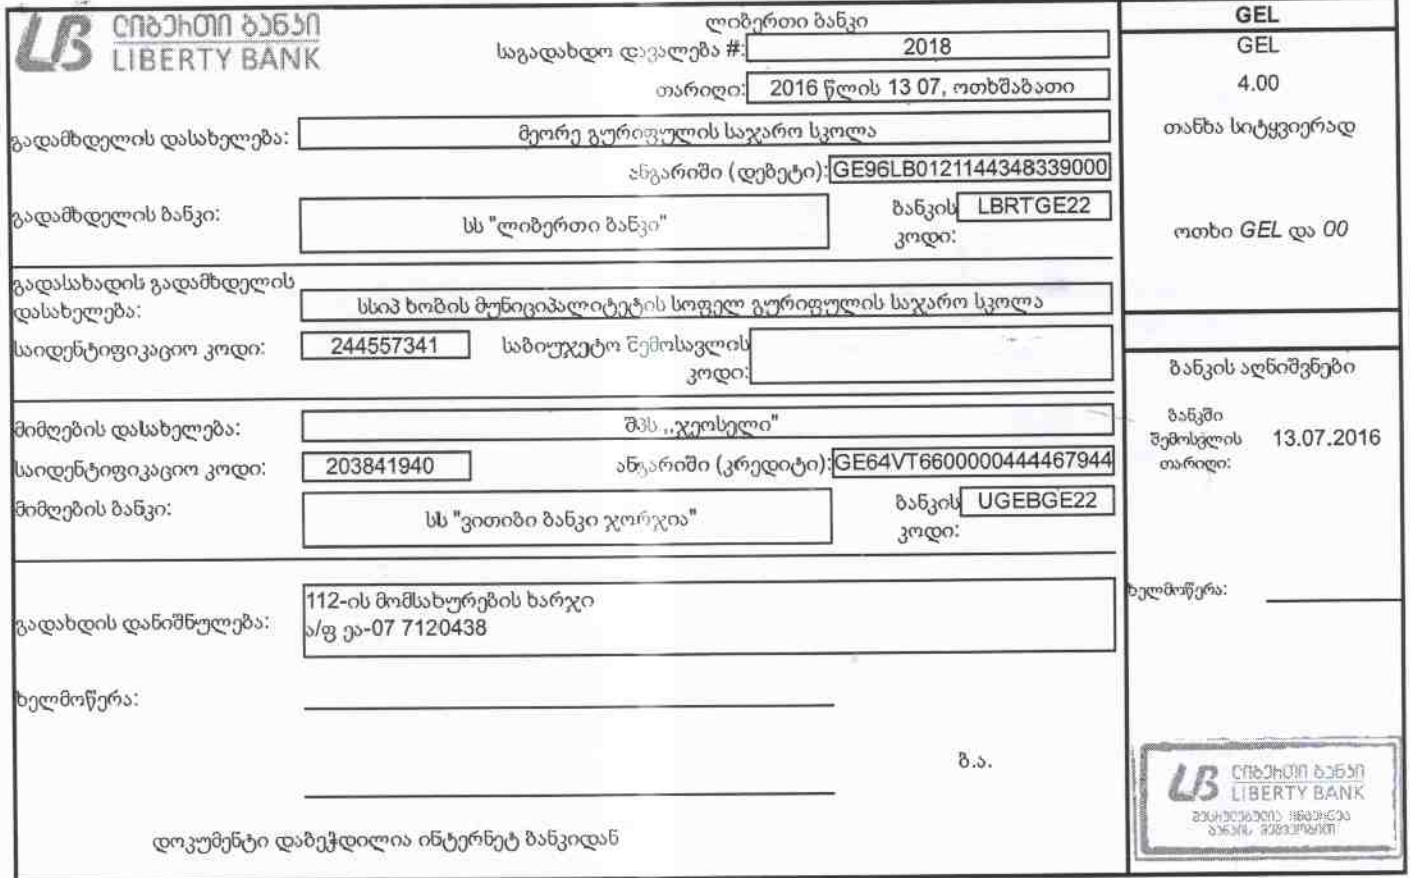 ლიბერთი ბანკი
LIBERTY BANK
ლიბერთი ბანკი
საგადახდო დავალება #: 2018
თარიღი: 2016 წლის 13 07, ოთხშაბათი
გადამხდელის დასახელება: მეორე გურიფულის საჯარო სკოლა
ანგარიში (დებეტი): GE96LB0121144348339000
გადამხდელის ბანკი: სს "ლიბერთი ბანკი" ბანკის კოდი: LBRTGE22
გადასახადის გადამხდელის
დასახელება: სსიპ ხობის მუნიციპალიტეტის სოფელ გურიფულის საჯარო სკოლა
საიდენტიფიკაციო კოდი: 244557341 საბიუჯეტო შემოსავლის
კოდი:
მიმღების დასახელება: შპს ,,ჯეოსელი"
საიდენტიფიკაციო კოდი: 203841940 ანგარიში (კრედიტი): GE64VT6600000444467944
მიმღების ბანკი: სს "ვითიბი ბანკი ჯორჯია" ბანკის კოდი: UGEBGE22
გადახდის დანიშნულება: 112-ის მომსახურების ხარჯი
ა/ფ ეა-07 7120438
ხელმოწერა:
ბ.ა.
დოკუმენტი დაბეჭდილია ინტერნეტ ბანკიდან
GEL
GEL
4.00
თანხა სიტყვიერად
ოთხი GEL და 00
ბანკის აღნიშვნები
ბანკში
შემოსვლის 13.07.2016
თარიღი:
ხელმოწერა:
ლიბერთი ბანკი
LIBERTY BANK
შესრულებულია ინტერნეტ
ბანკის მეშვეობით